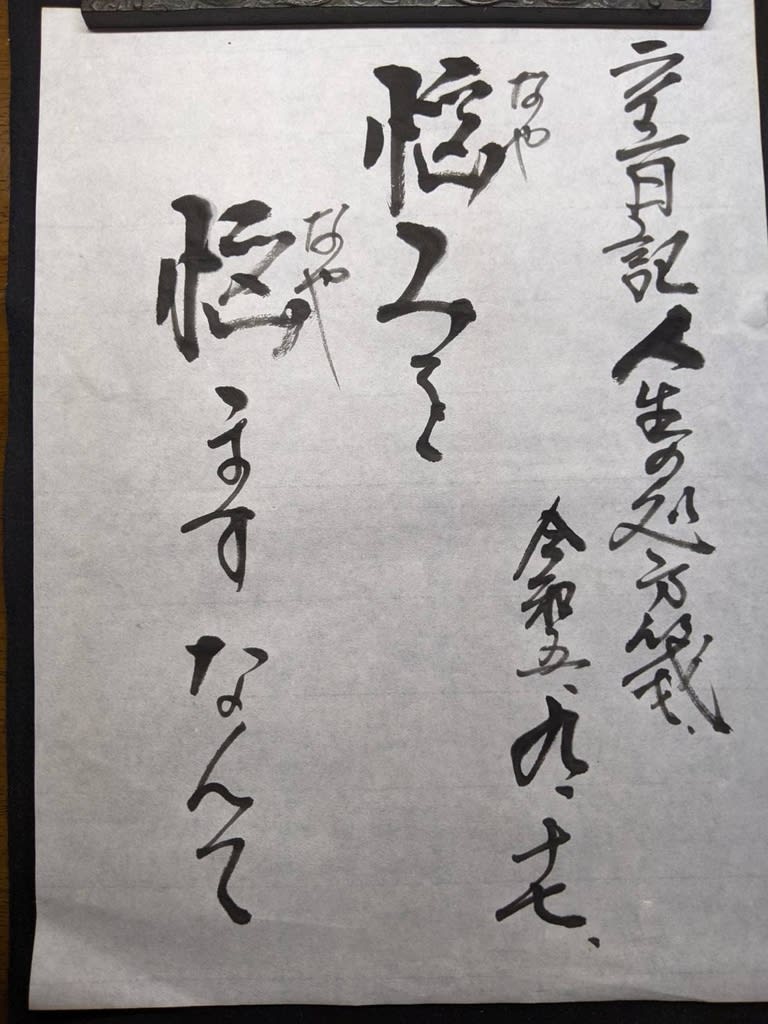 日記 人生の処方箋、
令和五、九、十七、
なや
悩みを
なや
悩ます なんて